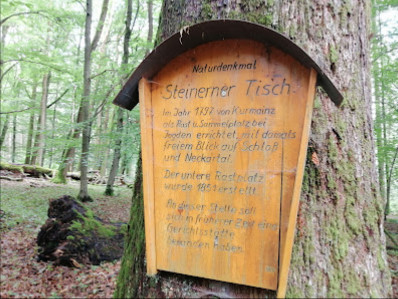 Naturdenkmal
Steinerner Tisch
Im Jahr 1797 von Kurmainz
als Rast u. Sammelplatz bei
Jagden errichtet, mit damals
freiem Blick auf Schloß
und Neckartal.
Der untere Rastplatz
wurde 1851 erstellt
An dieser Stelle soll
in früherer Zeit eine
Gerichtsstätte
gestanden haben.